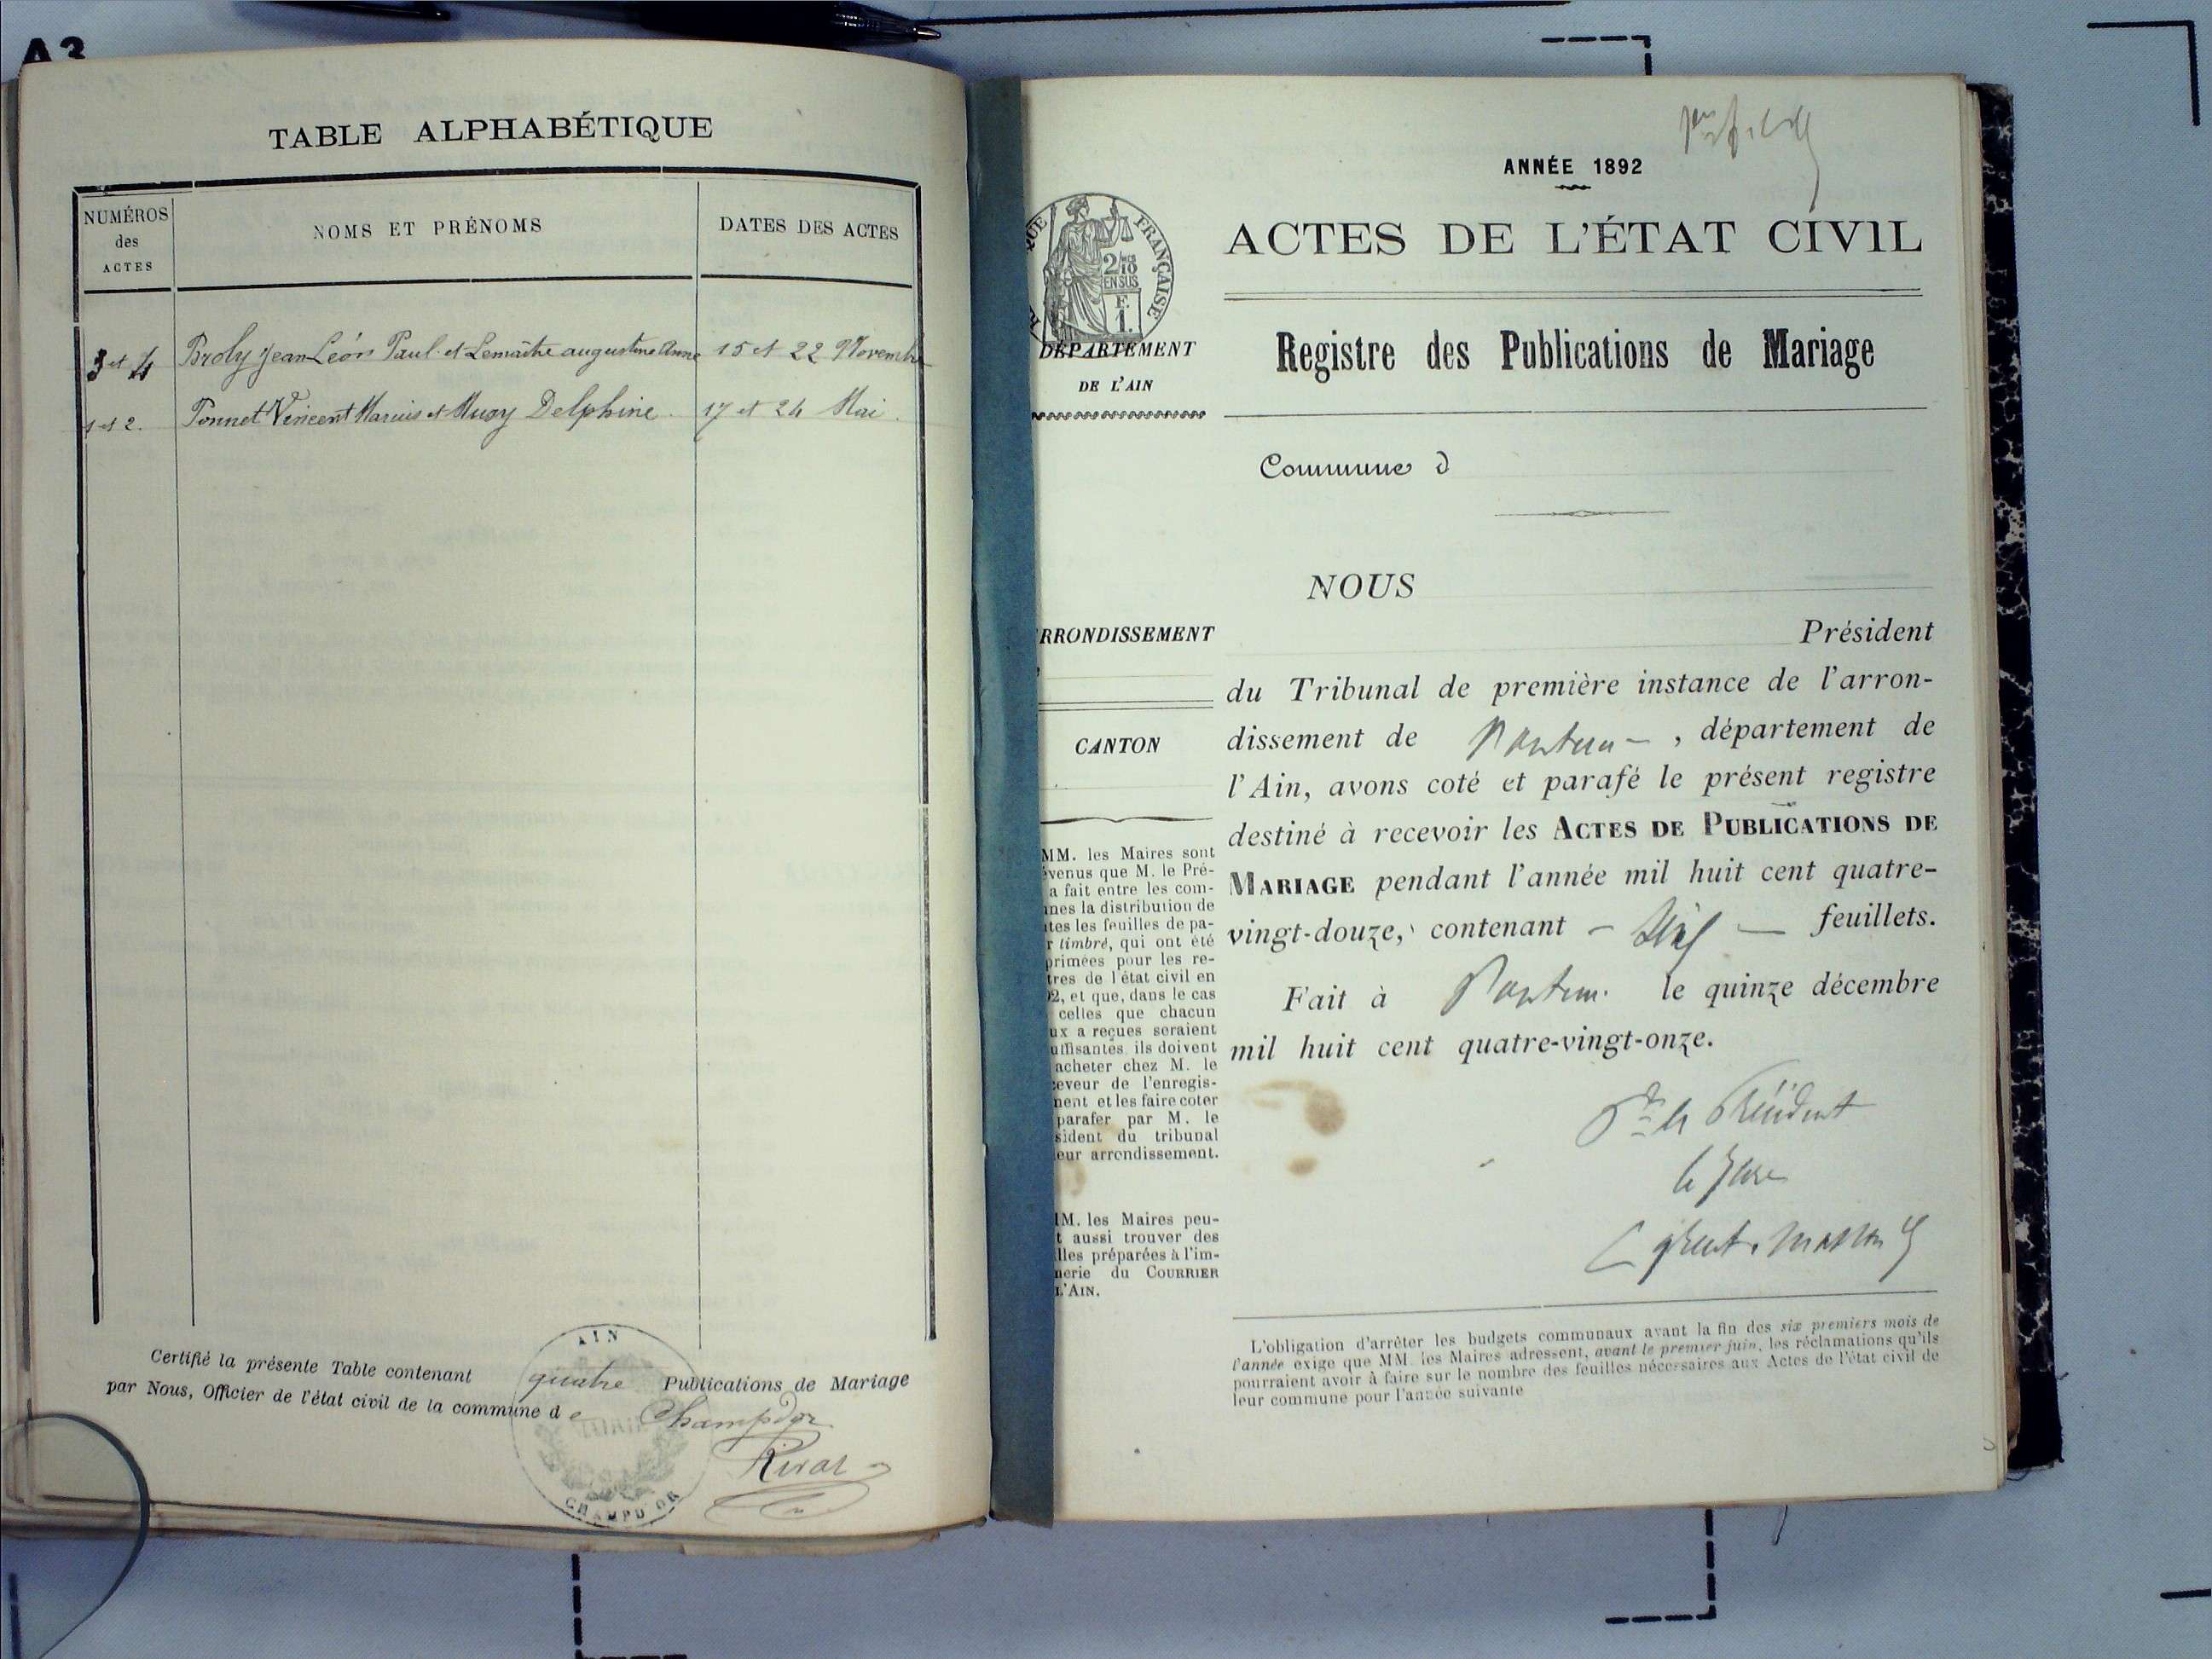 A3
TABLE ALPHABÉTIQUE
NUMÉROS
des
ACTES
NOMS ET PRÉNOMS
DATES DES ACTES
3 et 4 Broly Jean Léon Paul et Lemaître augustine Anne 15 et 22 Novembre
1 et 2. Ponnet Vincent Marius et Mugy Delphine. 17 et 24 Mai.
Certifié la présente Table contenant quatre Publications de Mariage
par Nous, Officier de l'état civil de la commune de Champdor
AIN
MAIRIE
CHAMPD'OR
ANNÉE 1892
ACTES DE L'ÉTAT CIVIL
QUE FRANÇAISE
2/10
EN SUS
F.
1.
DÉPARTEMENT
DE L'AIN
Registre des Publications de Mariage
Commune d
NOUS
Président
RRONDISSEMENT
CANTON
du Tribunal de première instance de l'arron-
dissement de Nantua — , département de
l'Ain, avons coté et parafé le présent registre
destiné à recevoir les ACTES DE PUBLICATIONS DE
MARIAGE pendant l'année mil huit cent quatre-
vingt-douze, contenant — — feuillets.
Fait à Nantua. le quinze décembre
mil huit cent quatre-vingt-onze.
Pr le Président
le Juge
MM. les Maires sont
venus que M. le Pré-
a fait entre les com-
nes la distribution de
tes les feuilles de pa-
r timbré, qui ont été
primées pour les re-
tres de l'état civil en
2, et que, dans le cas
celles que chacun
ux a reçues seraient
uffisantes, ils doivent
acheter chez M. le
eveur de l'enregis-
ment et les faire coter
parafer par M. le
sident du tribunal
eur arrondissement.
M. les Maires peu-
t aussi trouver des
lles préparées à l'im-
merie du COURRIER
L'AIN.
L'obligation d'arrêter les budgets communaux avant la fin des six premiers mois de
l'année exige que MM. les Maires adressent, avant le premier juin, les réclamations qu'ils
pourraient avoir à faire sur le nombre des feuilles nécessaires aux Actes de l'état civil de
leur commune pour l'année suivante